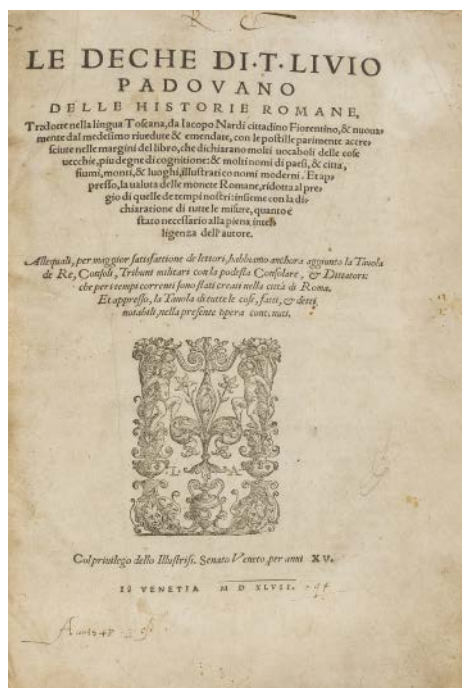 LE DECHE DI·T·LIVIO
PADOVANO
DELLE HISTORIE ROMANE,
Tradotte nella lingua Toscana, da Iacopo Nardi cittadino Fiorentino, & nuoua-
mente dal medesimo riuedute & emendate, con le postille parimente accre-
sciute nelle margini del libro, che dichiarano molti uocaboli delle cose
uecchie, piu degne di cognitione: & molti nomi di paesi, & citta,
fiumi, monti, & luoghi, illustrati co nomi moderni. Et ap-
presso, la ualuta delle monete Romane, ridotta al pre-
gio di quelle de tempi nostri: insieme con la di-
chiaratione di tutte le misure, quanto è
stato necessario alla piena intel-
ligenza dell'autore.
Alle quali, per maggior satisfattione de lettori, habbiamo anchora aggionto la Tauola
de Re, Consoli, Tribuni militari con la podestà Consolare, & Dittatori:
che per i tempi correnti sono stati creati nella città di Roma.
Et appresso, la Tauola di tutte le cose, fatti, & detti
notabili, nella presente opera contenuti.
L A
Col priuilegio dello Illustriss. Senato Veneto, per anni XV.
IN VENETIA M D XLVII.